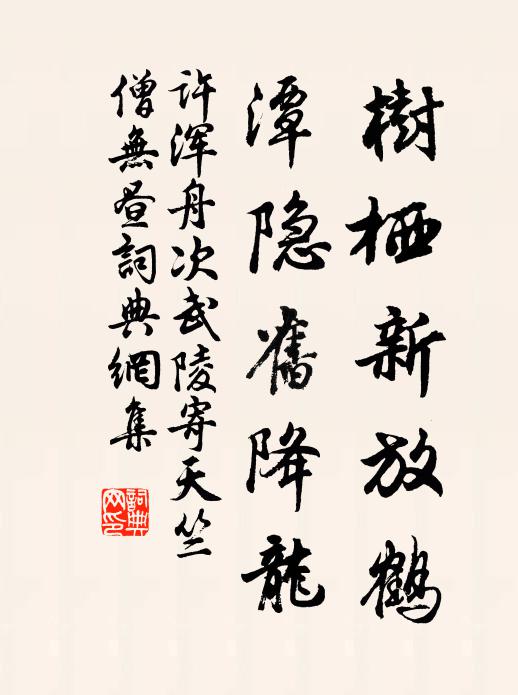 樹栖新放鶴
潭隐舊降龍
许浑舟次武陵寄天竺
僧無昼詞典網集
詞典網印